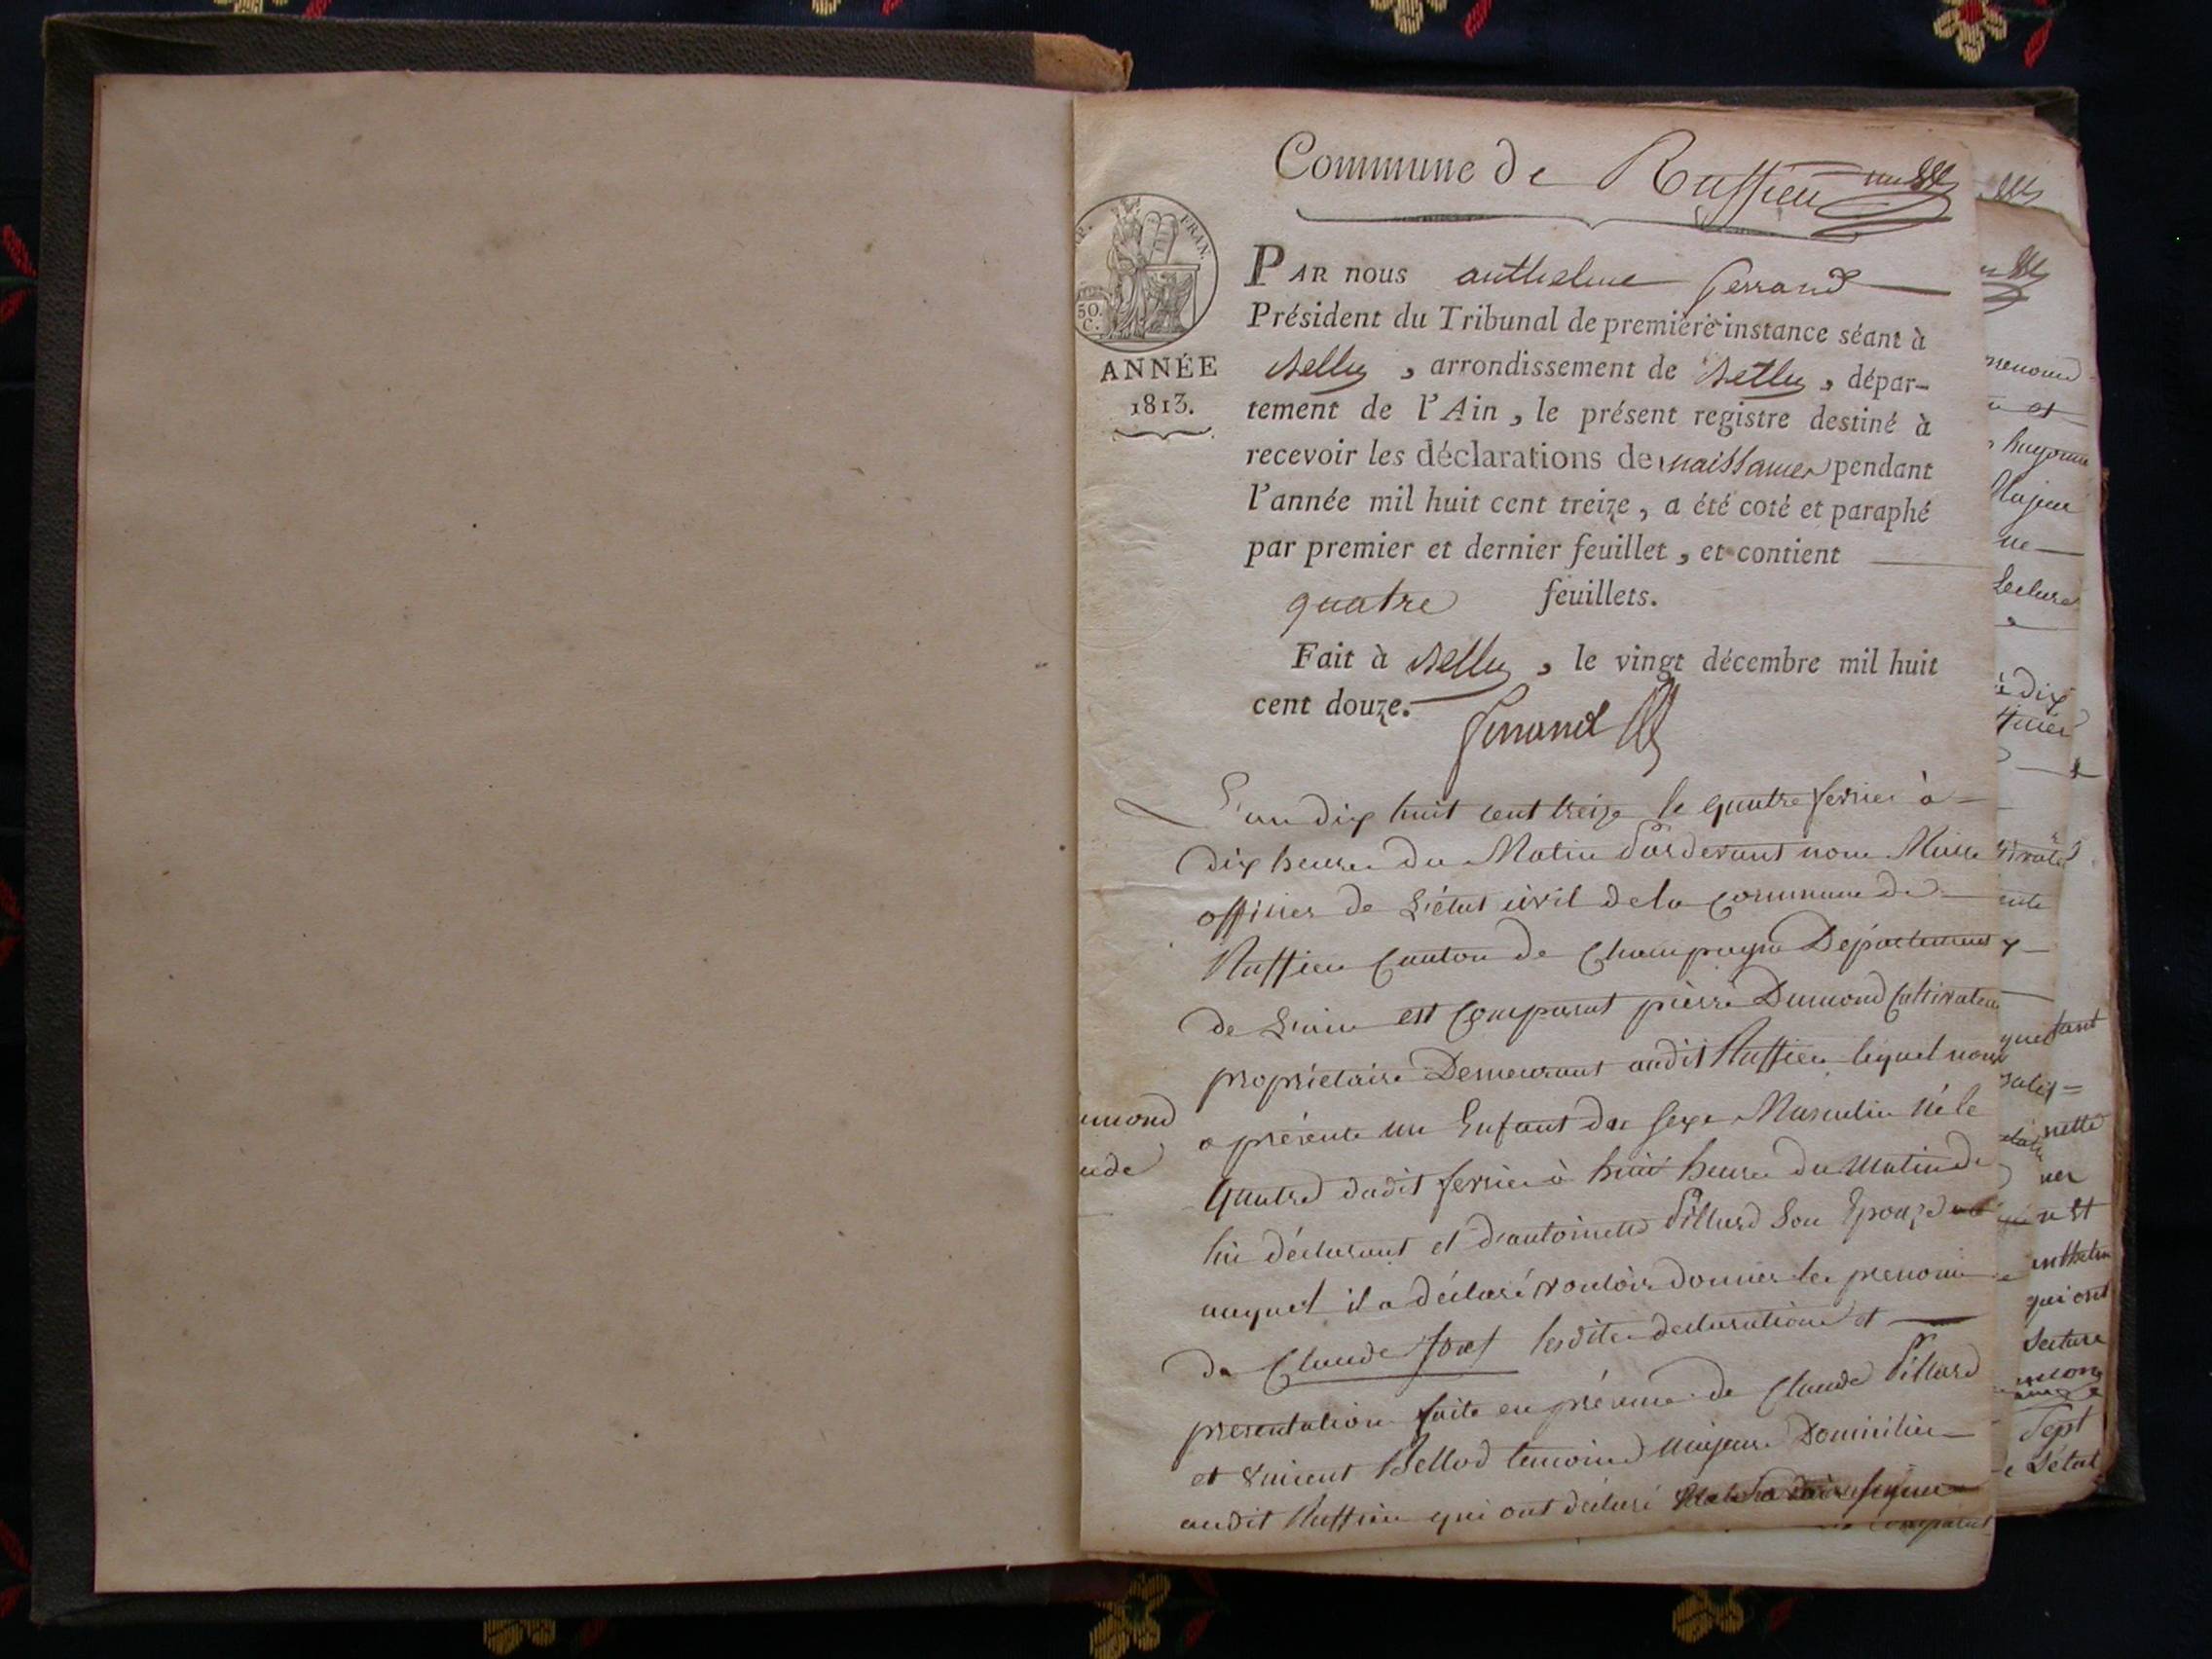 Commune de Ruffieu un
P. FRAN.
50.
C.
ANNÉE
1813.
PAR nous anthelme Ferrand
Président du Tribunal de première instance séant à
Belley, arrondissement de Belley, dépar-
tement de l'Ain, le présent registre destiné à
recevoir les déclarations de naissances pendant
l'année mil huit cent treize, a été coté et paraphé
par premier et dernier feuillet, et contient
quatre feuillets.
Fait à Belley, le vingt décembre mil huit
cent douze.
Ferrand
L'an dix huit cent treize le quatre fevrier à
dix heures du Matin Pardevant nous Maire
officier de L'état civil de la Commune de
Ruffieu Canton de Champagne Departement
de L'ain est Comparut pierre Dumond Cultivateur
propriétaire Demeurant audit Ruffieu lequel nous
a présenté un Enfant du sexe Masculin né le
quatre dudit fevrier à huit heures du matin de
lui déclarant et d'antoinette Pillard Son Epouze
auquel il a déclaré vouloir donner les prenoms
de Claude lesdites declaration et
presentation faite en présence de Claude Pillard
et Vincent Bellod temoins majeurs Domicilies
audit Ruffieu qui ont déclaré
mond
ude